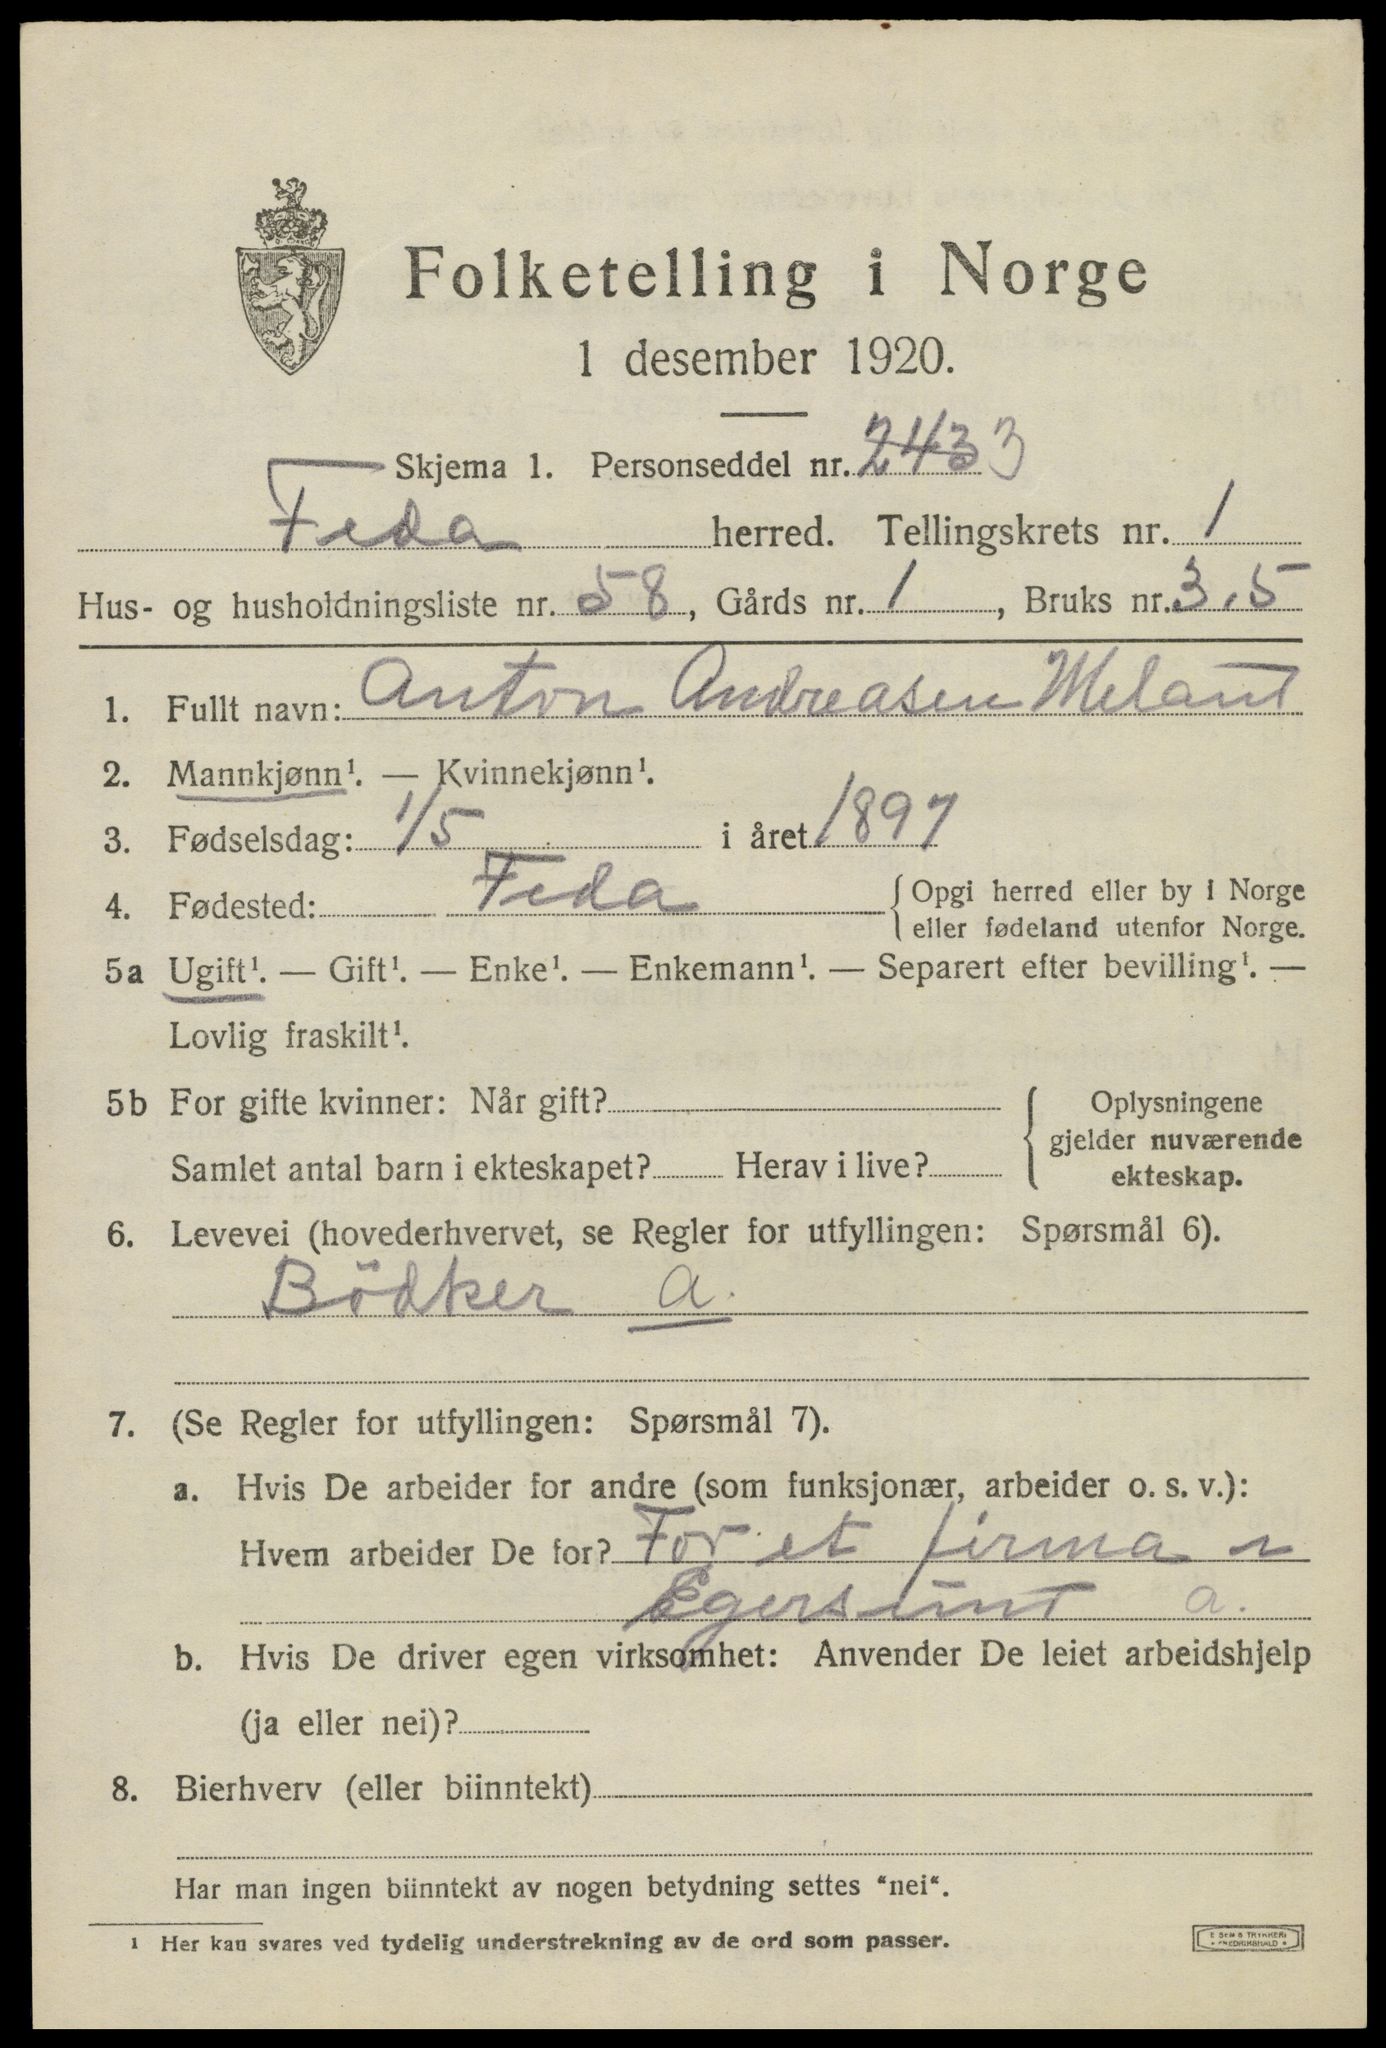 Folketelling i Norge
1 desember 1920.
Skjema 1. Personseddel nr. 243 3
Feda herred. Tellingskrets nr. 1
Hus- og husholdningsliste nr. 58, Gårds nr. 1, Bruks nr. 3,5
1. Fullt navn: Anton Andreasen Melant
2. Mannkjønn¹. — Kvinnekjønn¹.
3. Fødselsdag: 1/5 i året 1897
4. Fødested: Feda { Opgi herred eller by i Norge
eller fødeland utenfor Norge.
5a Ugift¹. — Gift¹. — Enke¹. — Enkemann¹. — Separert efter bevilling¹. —
Lovlig fraskilt¹.
5b For gifte kvinner: Når gift? { Oplysningene
gjelder nuværende
Samlet antal barn i ekteskapet? Herav i live? ekteskap.
6. Levevei (hovederhvervet, se Regler for utfyllingen: Spørsmål 6).
Bödker a.
7. (Se Regler for utfyllingen: Spørsmål 7).
a. Hvis De arbeider for andre (som funksjonær, arbeider o. s. v.):
Hvem arbeider De for? For et firma i
Egersunt a.
b. Hvis De driver egen virksomhet: Anvender De leiet arbeidshjelp
(ja eller nei)?
8. Bierhverv (eller biinntekt)
Har man ingen biinntekt av nogen betydning settes "nei".
1 Her kan svares ved tydelig understrekning av de ord som passer.